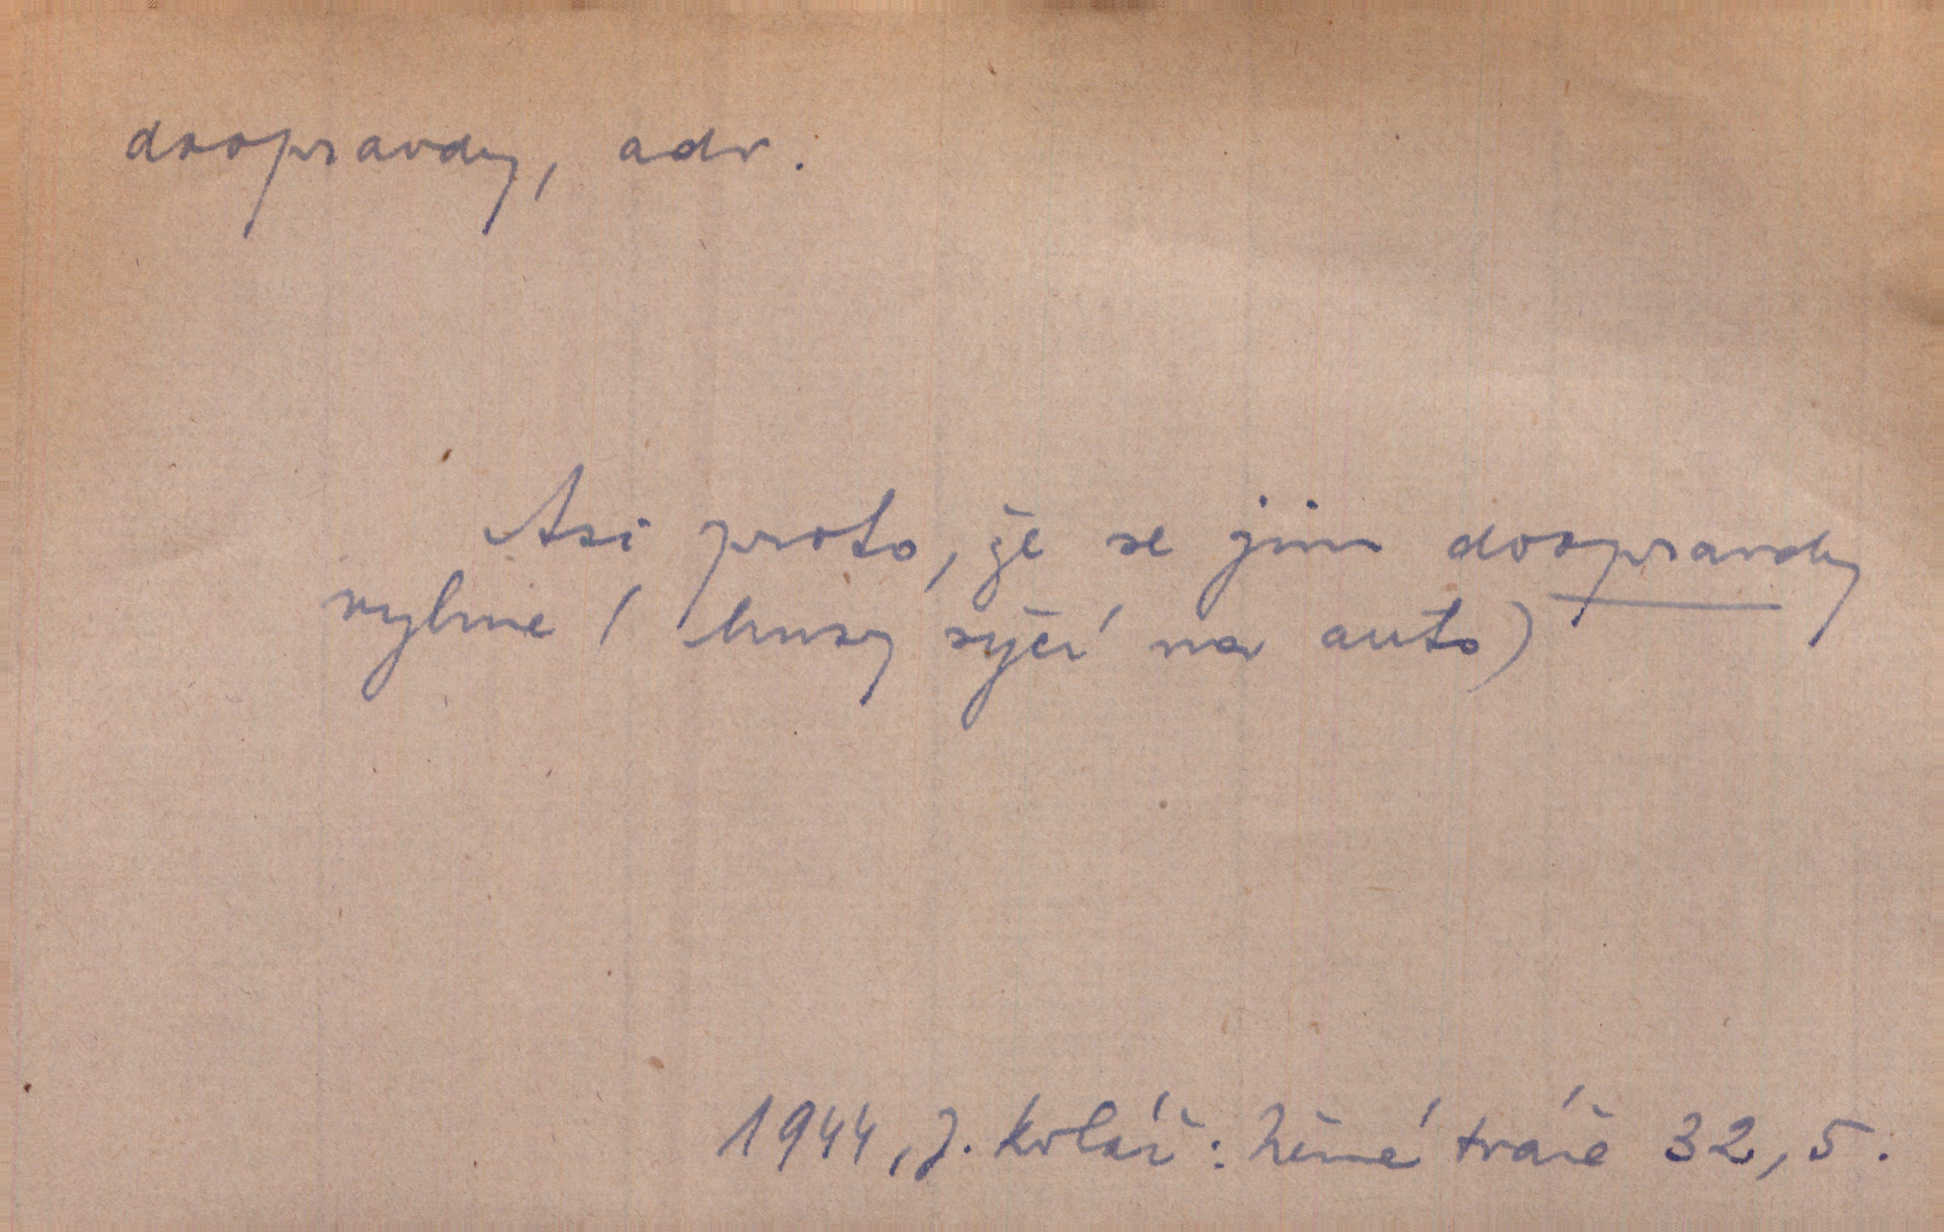 doopravdy, adv.
Asi proto, že se jim doopravdy
vyhne (husy syčí na auto)
1944, J. Kolář: Němé tváře 32, 5.